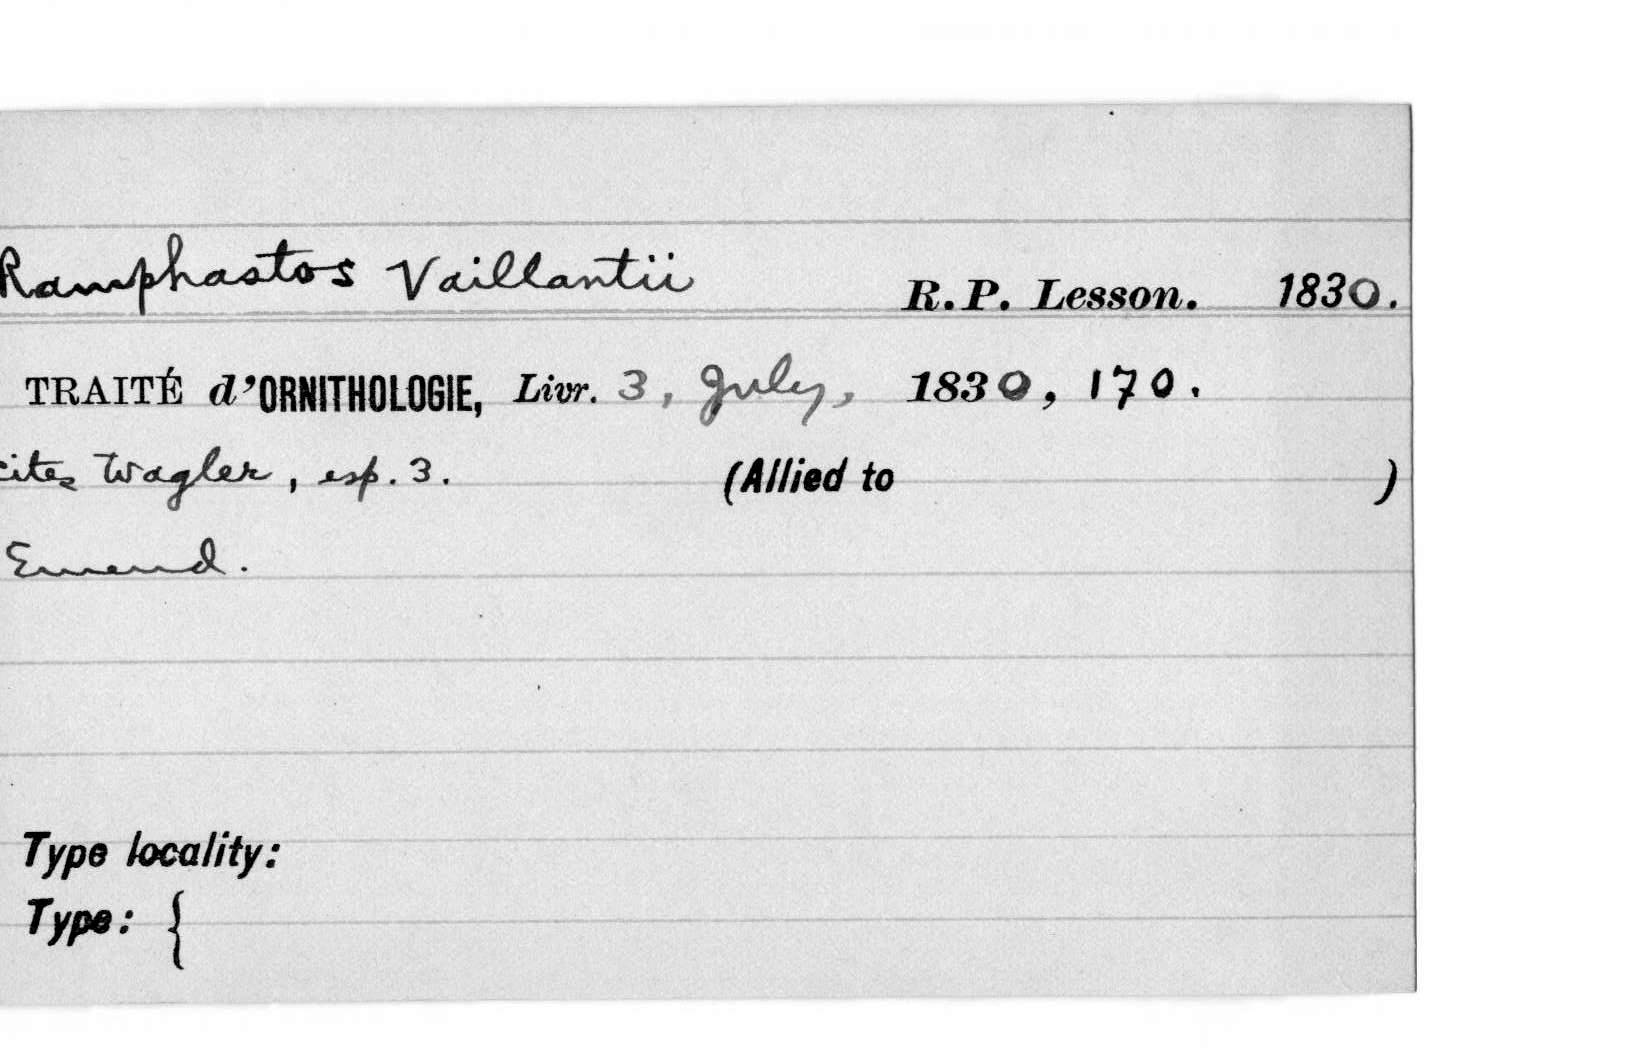 Ramphastos Vaillantii R.P. Lesson. 1830.
TRAITÉ d'ORNITHOLOGIE, Livr. 3, July, 1830, 170.
cites Wagler, esp. 3. (Allied to )
Emend.
Type locality:
Type: {